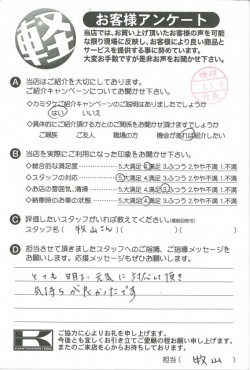 軽
お客様アンケート
当店では、お買い上げ頂いたお客様の声を可能
な限り現場に反映し、お客様により良い商品と
サービスを提供する事に努めています。
大変お手数ですが是非お声をお聞かせ下さい。
A 当店はご紹介を大切にしております。
ご紹介キャンペーンについてお聞かせ下さい。
◇カミタケご紹介キャンペーンの説明はありましたでしょうか
はい いいえ
◇具体的にご紹介頂ける方とのご関係をお聞かせ頂けますでしょうか
ご親族 ご友人 職場の方 機会があれば紹介したい
B 当店を実際にご利用になった印象をお聞かせ下さい。
◇総合的な満足度 5.大満足 4.満足 3.ふつう 2.やや不満 1.不満
◇スタッフの対応 5.大満足 4.満足 3.ふつう 2.やや不満 1.不満
◇お店の雰囲気、清掃 5.大満足 4.満足 3.ふつう 2.やや不満 1.不満
◇納車時のお車の状態 5.大満足 4.満足 3.ふつう 2.やや不満 1.不満
C 評価したいスタッフがいれば教えてください。(複数回答可)
スタッフ名( 牧山さん )( )( )
D 担当させて頂きましたスタッフへのご指摘、ご指導メッセージを
お願いします。応援メッセージもぜひお願いします。
とても明るく元気に対応して頂き
気持ちが良かったです。
ご協力に心よりお礼を申し上げます。
今後とも宜しくお引き立てご愛顧の程お願い申し上げます。
またのご来店を心からお待ちしております。
担当( 牧山 )